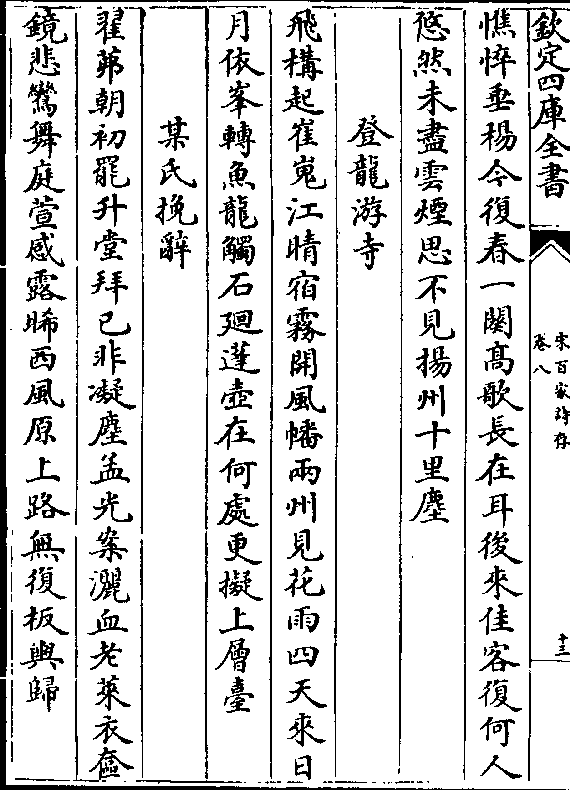 欽定四庫全書
宋百家詩存
卷八
十三
憔悴垂楊今復春一闋高歌長在耳後來佳客復何人
悠然未盡雲煙思不見揚州十里塵
登龍游寺
飛構起崔嵬江晴宿霧開風幡兩州見花雨四天來日
月依峯轉魚龍觸石廻蓬壺在何處更擬上層臺
某氏挽辭
翟茀朝初罷升堂拜已非凝塵孟光案灑血老萊衣奩
鏡悲鸞舞庭萱感露晞西風原上路無復板輿歸